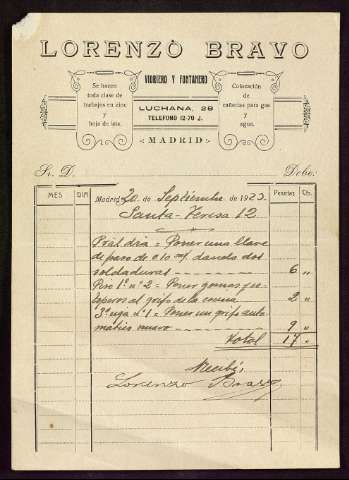 LORENZO BRAVO
VIDRIERO Y FONTANERO
Se hacen
toda clase de
trabajos en zinc
y
hoja de lata.
LUCHANA, 28
TELEFONO 12-70 J.
Colocación
de
cañerías para gas
y
agua.
MADRID
Sr. D.
Debe.
MES DIA Pesetas Cts.
Madrid 20 de Septiembre de 1923
Santa-Teresa 12
Pral dra = Poner una llave
de paso de 0.10 m/ dando dos
soldaduras 6 "
Piso 1º nº 2 = Poner gomas y
al grifo de la cocina 2 "
3º izqa nº 1 = Poner un grifo auto
matico nuevo 9 "
Total 17 "
Recibí
Lorenzo Bravo